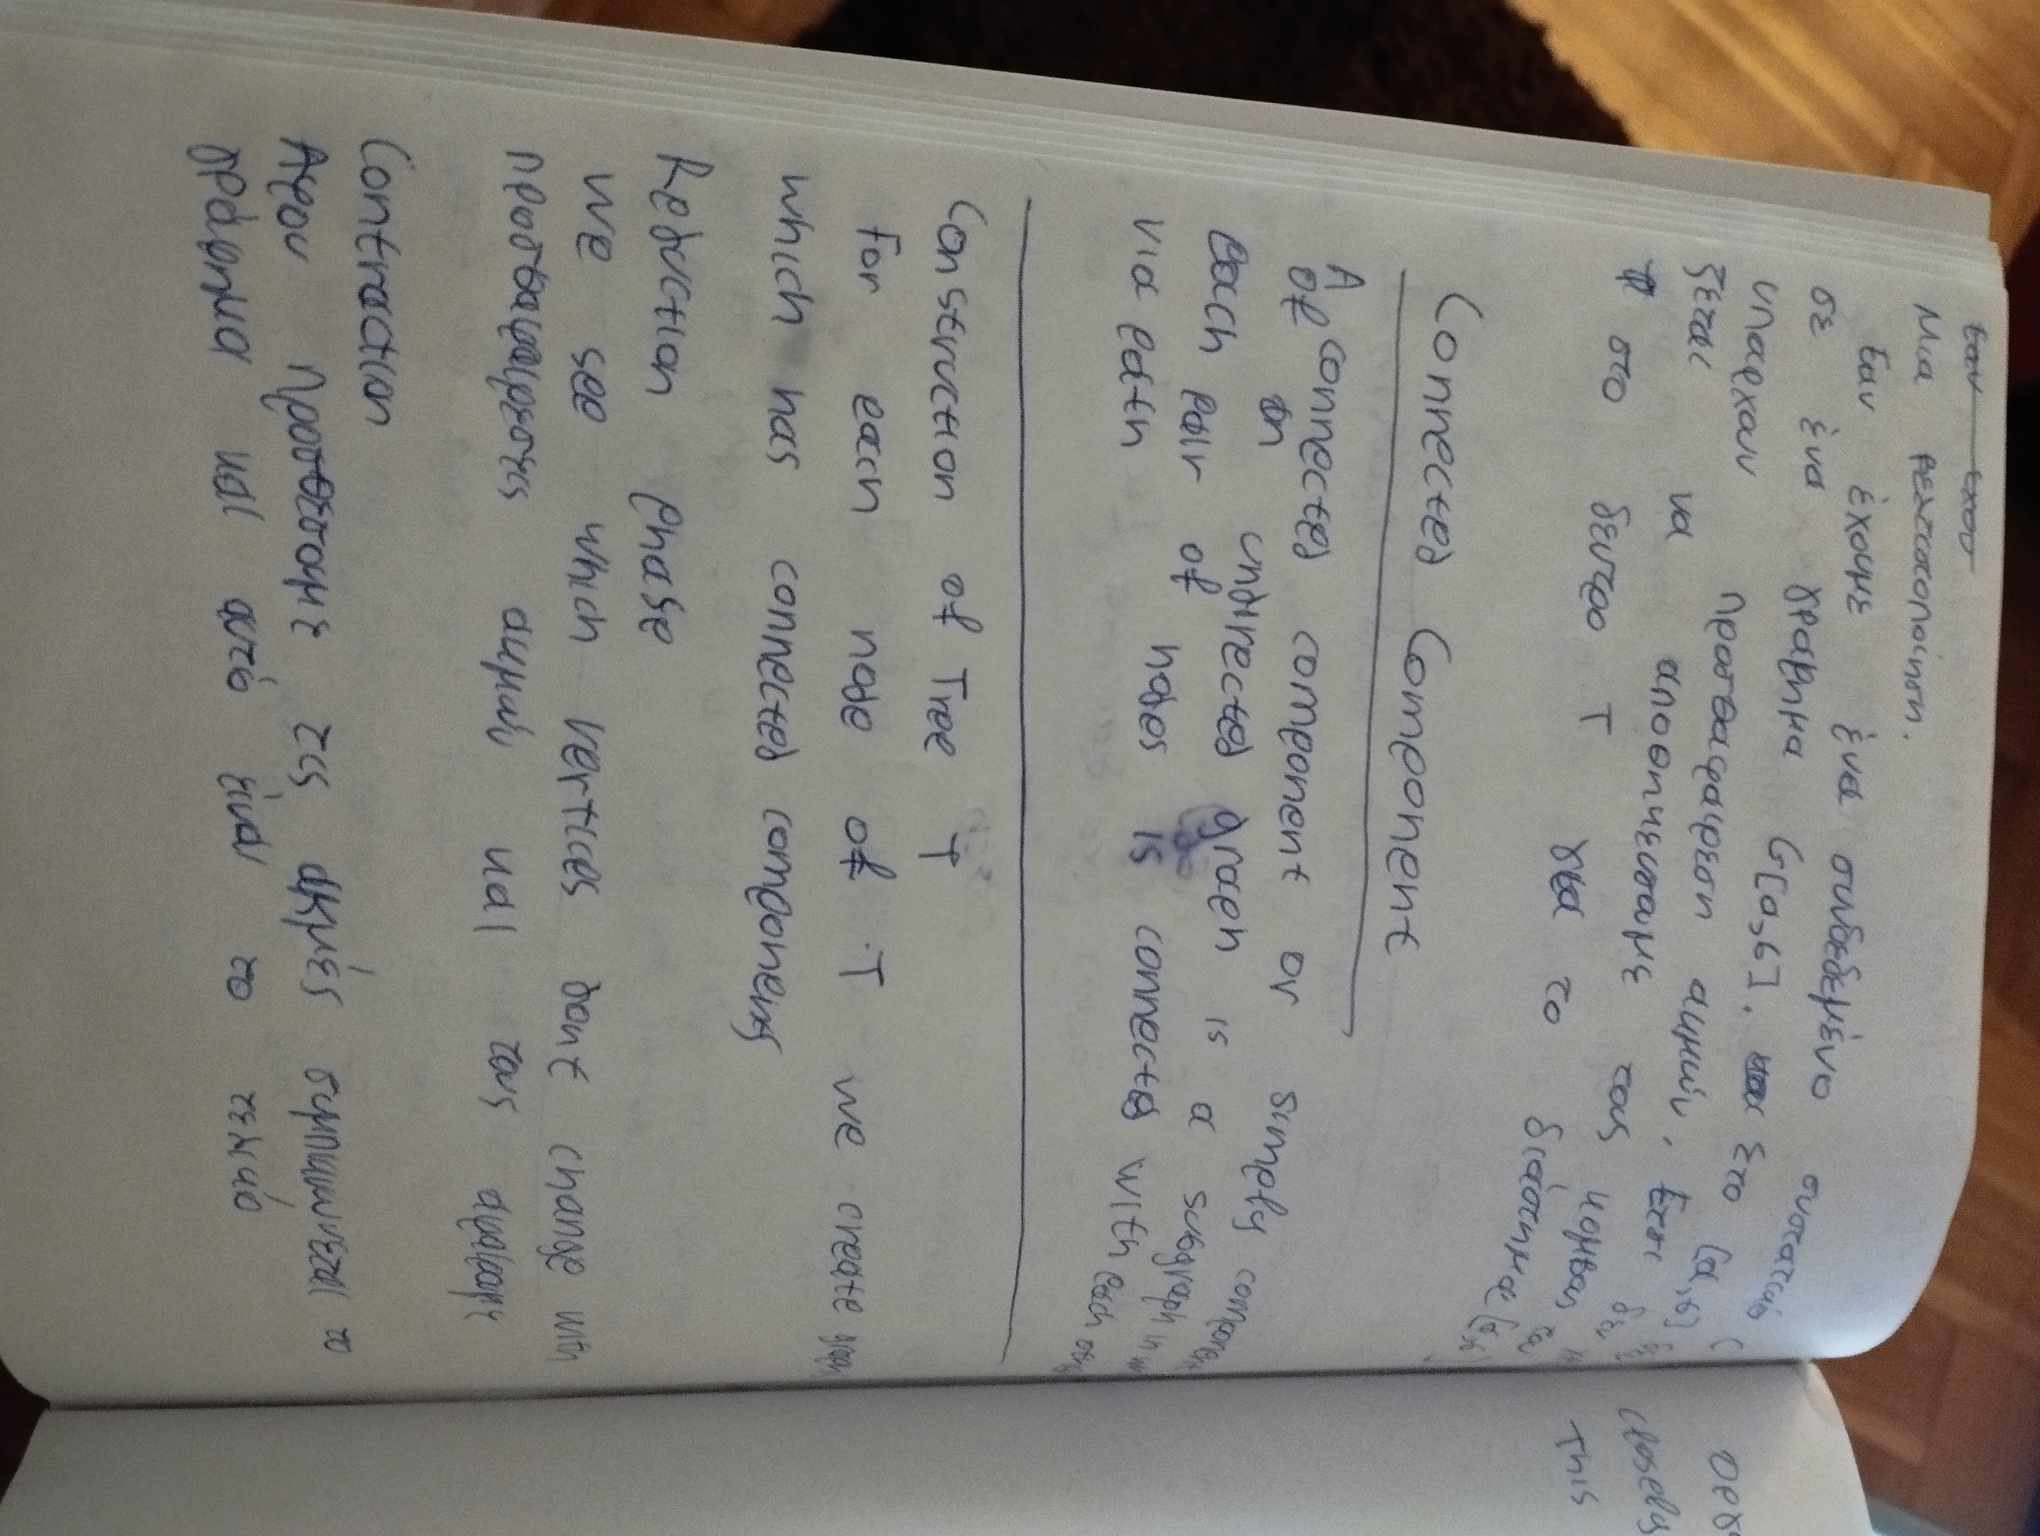 Μια βελτιστοποίηση.
Εαν έχουμε ένα συνδεδεμένο συστατικό
σε ένα γράφημα G[a,b]. Στο [a,b]
υπαρχουν προσθαφαιρεση ακμών.
να αποθηκευσουμε τους κομβους
στο δεντρο T για το διάστημα [a,b]
Connected Component
A connected component or simply component
of an undirected graph is a subgraph in
each pair of nodes is connected with each other
via path
Construction of Tree T
for each node of T we create graph
which has connected components
Reduction phase
we see which vertices dont change with
προσθαφαιρεσεις ακμών και τους αφαιρουμε
Contraction
Αφου προσθεσουμε τις ακμές συρικνωνεται το
γράφημα και αυτό είναι το τελικό
closely
This